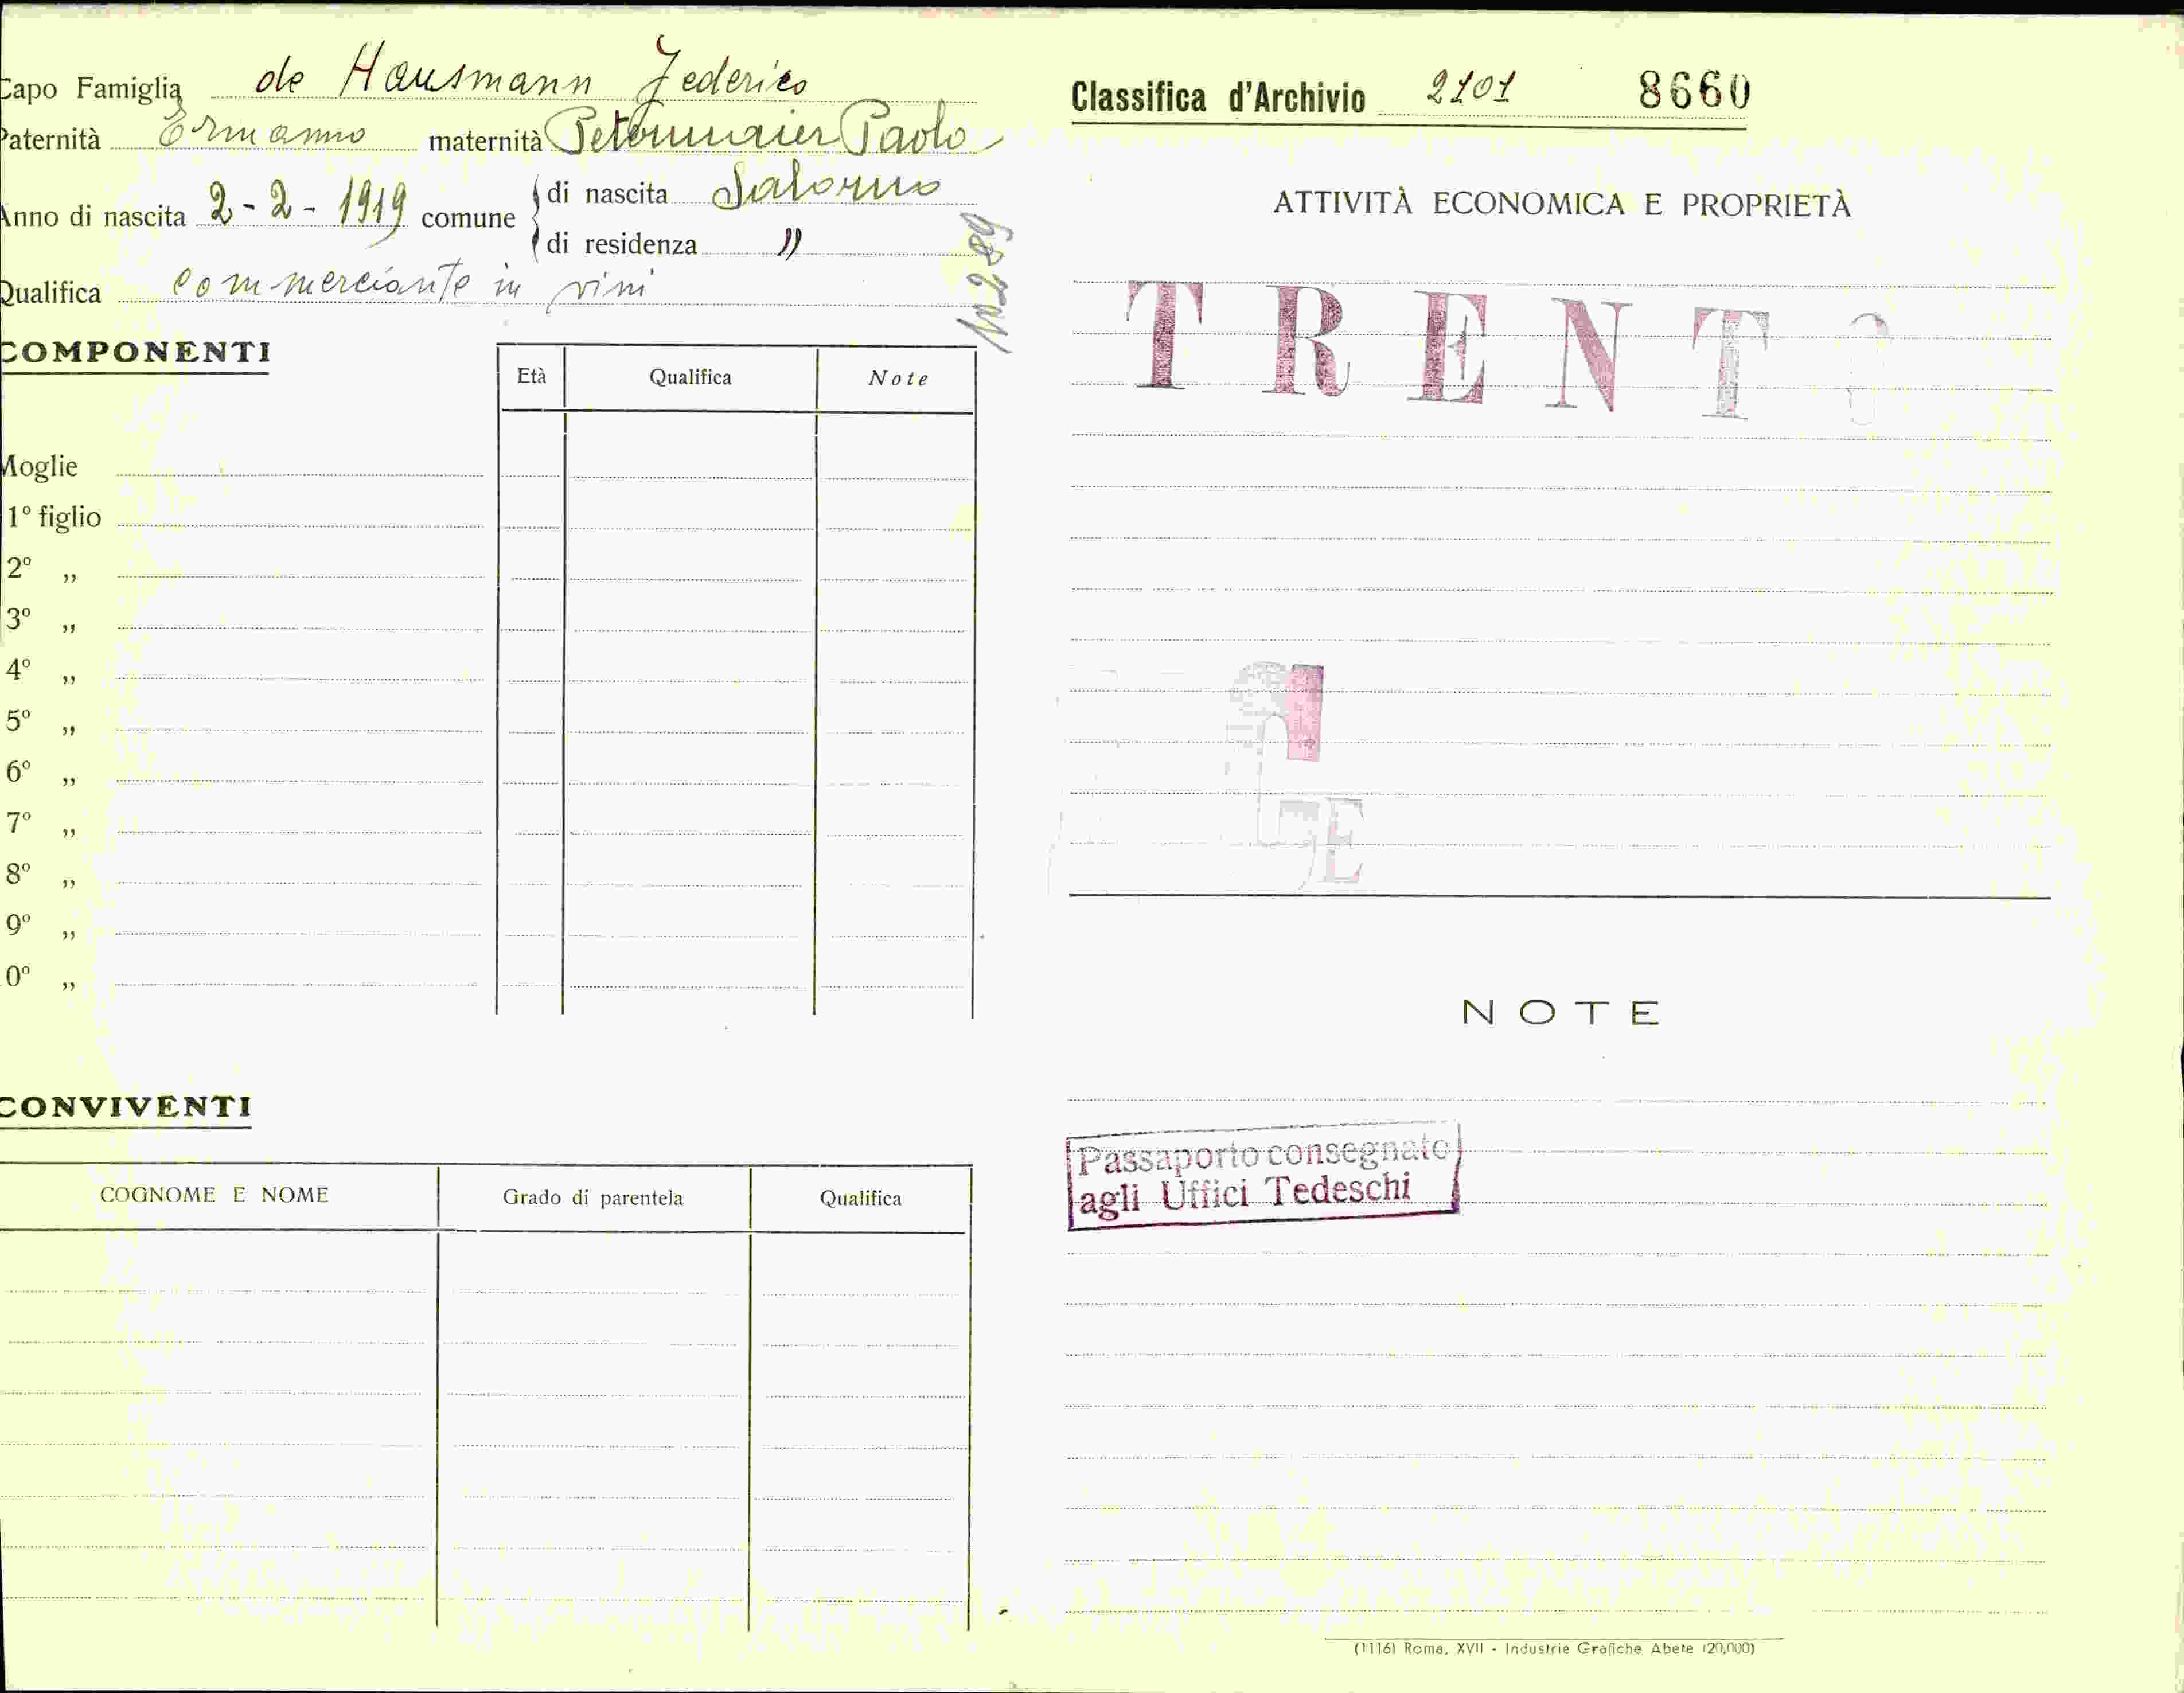 Capo Famiglia de Hausmann Federico
Paternità Ermanno maternità Petermaier Paolo
Anno di nascita 2-2-1919 comune di nascita Salorno
di residenza "
Qualifica commerciante in vini
COMPONENTI
Età Qualifica Note
Moglie
1º figlio
2º „
3º „
4º „
5º „
6º „
7º „
8º „
9º „
0º „
CONVIVENTI
COGNOME E NOME Grado di parentela Qualifica
Classifica d'Archivio 2101 8660
ATTIVITÀ ECONOMICA E PROPRIETÀ
TRENTO
E
NOTE
Passaporto consegnato
agli Uffici Tedeschi
(1116) Roma, XVII - Industrie Grafiche Abete (20,000)